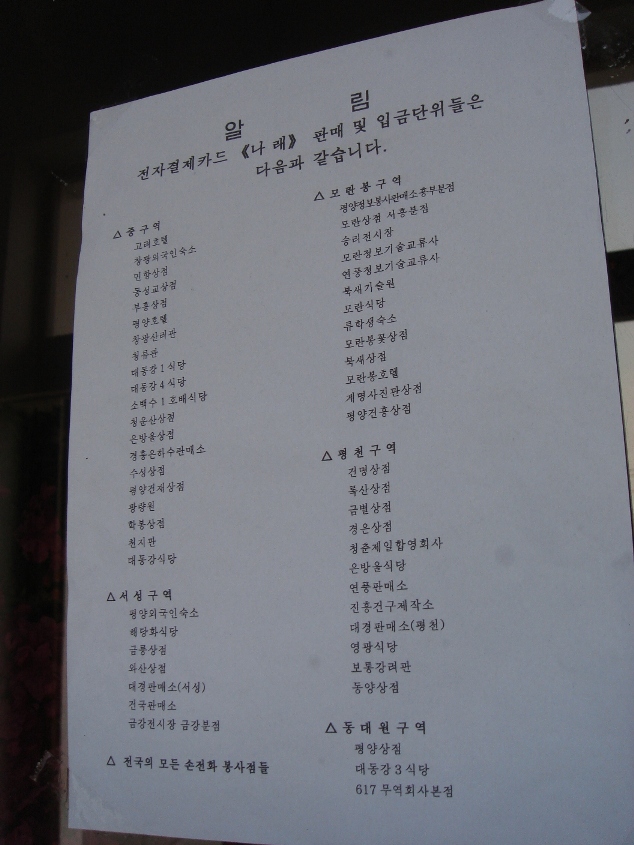 알 림
전자결제카드 《나 래》 판매 및 입금단위들은
다음과 같습니다.
△ 중구역
고려호텔
창광외국인숙소
민항상점
동성교상점
부흥상점
평양호텔
창광산려관
청류관
대동강1식당
대동강4식당
소백수1호배식당
청운산상점
은방울상점
경흥은하수판매소
수성상점
평양건재상점
광량원
학봉상점
천지관
대동강식당
△ 서성구역
평양외국인숙소
해당화식당
금릉상점
와산상점
대경판매소(서성)
건국판매소
금강전시장 금강분점
△ 전국의 모든 손전화 봉사점들
△ 모란봉구역
평양정보봉사판매소 흥부분점
모란상점 서흥분점
승리전시장
모란정보기술교류사
연풍정보기술교류사
북새기술원
모란식당
류학생숙소
모란봉꽃상점
북새상점
모란봉호텔
계명사진관상점
평양건흥상점
△ 평천구역
건명상점
록산상점
금별상점
경은상점
청춘제일합영회사
은방울식당
연풍판매소
진흥건구제작소
대경판매소(평천)
영광식당
보통강려관
동양상점
△ 동대원구역
평양상점
대동강3식당
617무역회사본점